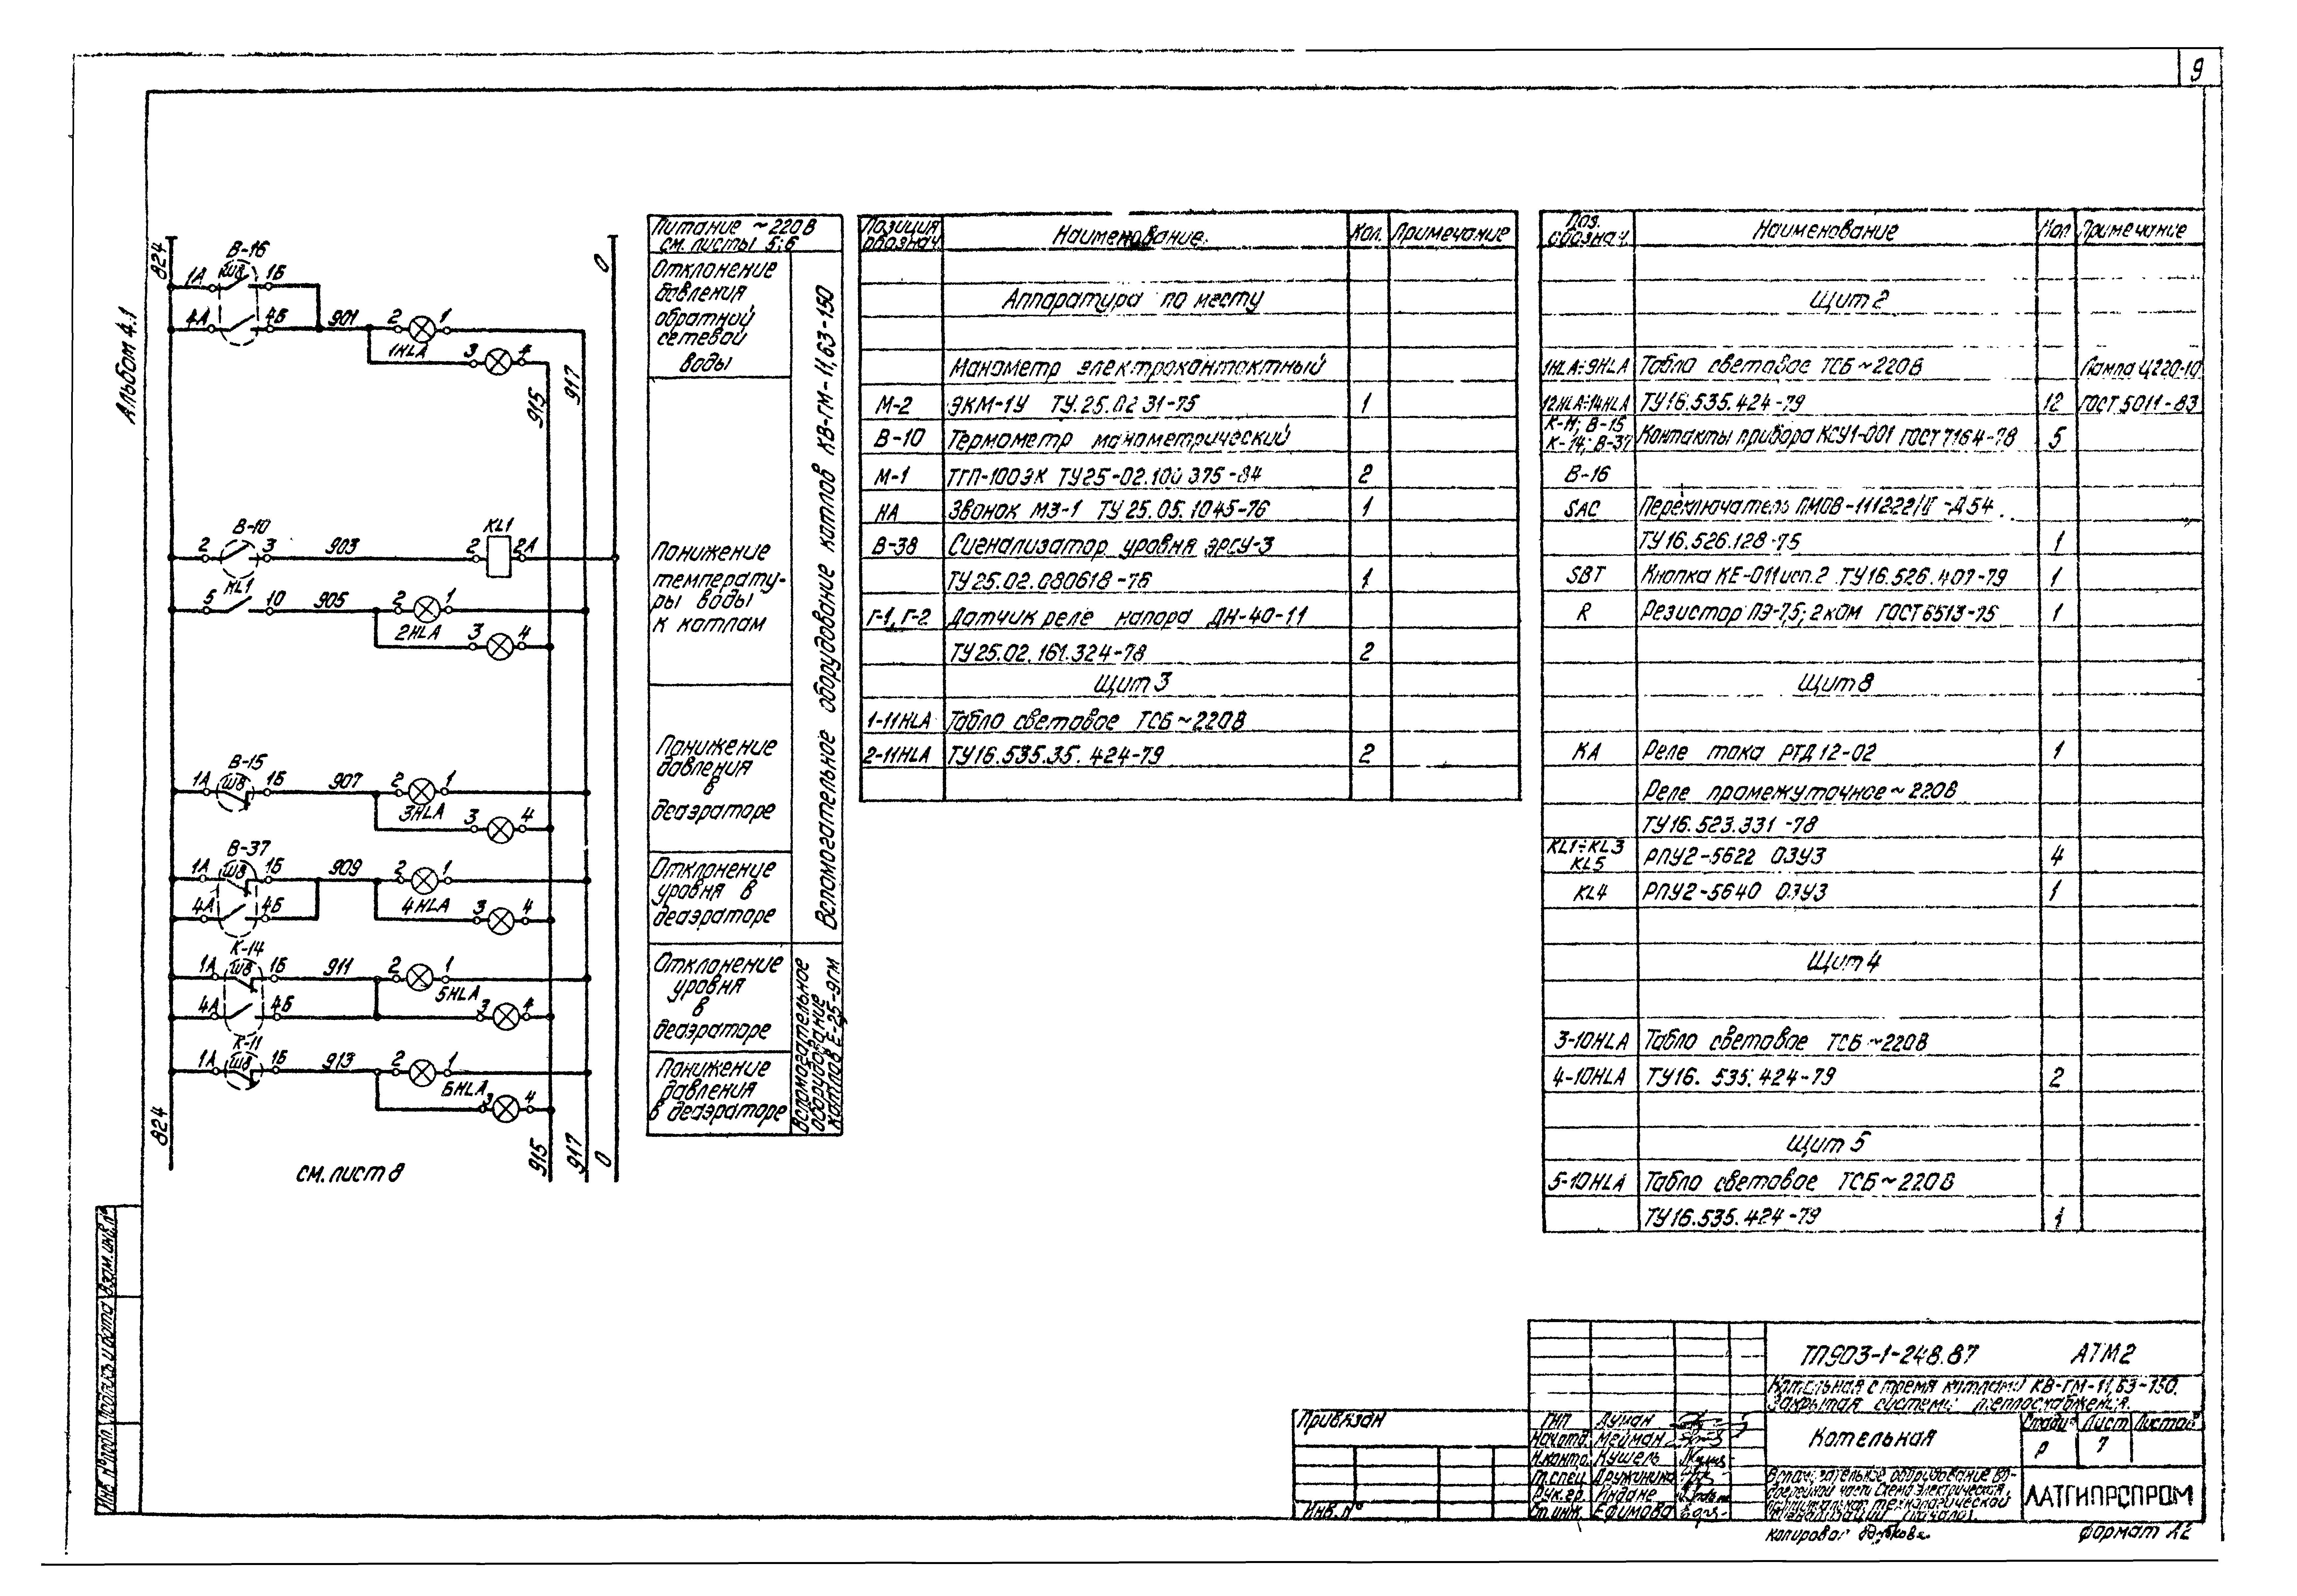 9
Альбом 4.1
824
В-16
1А
Ш8
1Б
4А
4Б
901
2
1
1HLA
3
4
0
915
917
В-10
2
3
903
KL1
2
2А
KL1
5
10
905
2
1
2HLA
3
4
В-15
1А
Ш8
1Б
907
2
1
3HLA
3
4
В-37
1А
Ш8
1Б
909
2
1
4А
4Б
4HLA
3
4
К-14
1А
Ш8
1Б
911
2
1
5HLA
4А
4Б
3
4
К-11
1А
Ш8
1Б
913
2
1
6HLA
3
4
824
915
917
0
см. лист 8
Питание ~220В
см. листы 5;6
Отклонение
давления
обратной
сетевой
воды
Понижение
температу-
ры воды
к котлам
Понижение
давления
в
деаэраторе
Отклонение
уровня в
деаэраторе
Отклонение
уровня
в
деаэраторе
Понижение
давления
в деаэраторе
Вспомогательное оборудование котлов КВ-ГМ-11,63-150
Вспомогательное
оборудование
котлов Е-25-9ГМ
Позиция обознач. Наименование. Кол. Примечание
Аппаратура по месту
Манометр электроконтактный
М-2 ЭКМ-1У ТУ.25.02 31-75 1
В-10 Термометр манометрический
М-1 ТГП-100ЭК ТУ25-02.100 375-84 2
НА Звонок МЗ-1 ТУ 25.05.1045-76 1
В-38 Сигнализатор уровня ЭРСУ-3
ТУ25.02.080618-76 1
Г-1, Г-2 Датчик реле напора ДН-40-11
ТУ25.02.161.324-78 2
Щит 3
1-11HLA Табло световое ТСБ~220В
2-11HLA ТУ16.535.35.424-79 2
Поз. обознач Наименование Кол Примечание
Щит 2
1HLA÷9HLA Табло световое ТСБ~220В Лампа Ц220-10
12HLA÷14HLA ТУ16.535.424-79 12 ГОСТ 5011-83
К-11; В-15
К-14; В-37 Контакты прибора КСУ1-001 ГОСТ 7164-78 5
В-16
SAC Переключатель ПМОВ-111222/II-Д54
ТУ16.526.128-75 1
SBT Кнопка КЕ-011 исп.2 ТУ16.526.407-79 1
R Резистор ПЭ-7,5; 2кОм ГОСТ 6513-75 1
Щит 8
КА Реле тока РТД12-02 1
Реле промежуточное~220В
ТУ16.523.331-78
KL1÷KL3
KL5 РПУ2-5622 03У3 4
KL4 РПУ2-5640 03У3 1
Щит 4
3-10HLA Табло световое ТСБ~220В
4-10HLA ТУ16.535.424-79 2
Щит 5
5-10HLA Табло световое ТСБ~220В
ТУ16.535.424-79 1
Взам. инв. №
Подпись и дата
Инв № подл.
Привязан
Инв. №
ГИП Думан
Нач.отд. Мейман
Н.контр. Кушель
Гл.спец Дружинина
Рук.гр. Индане
Ст.инж. Ефимова
ТП903-1-248.87 АТМ2
Котельная с тремя котлами КВ-ГМ-11,63-150.
Закрытая система теплоснабжения.
Котельная
Стадия Лист Листов
Р 7
Вспомогательное оборудование во-
догрейной части Схема электрическая
принципиальная технологической
сигнализации (начало).
ЛАТГИПРОПРОМ
копировал
формат А2